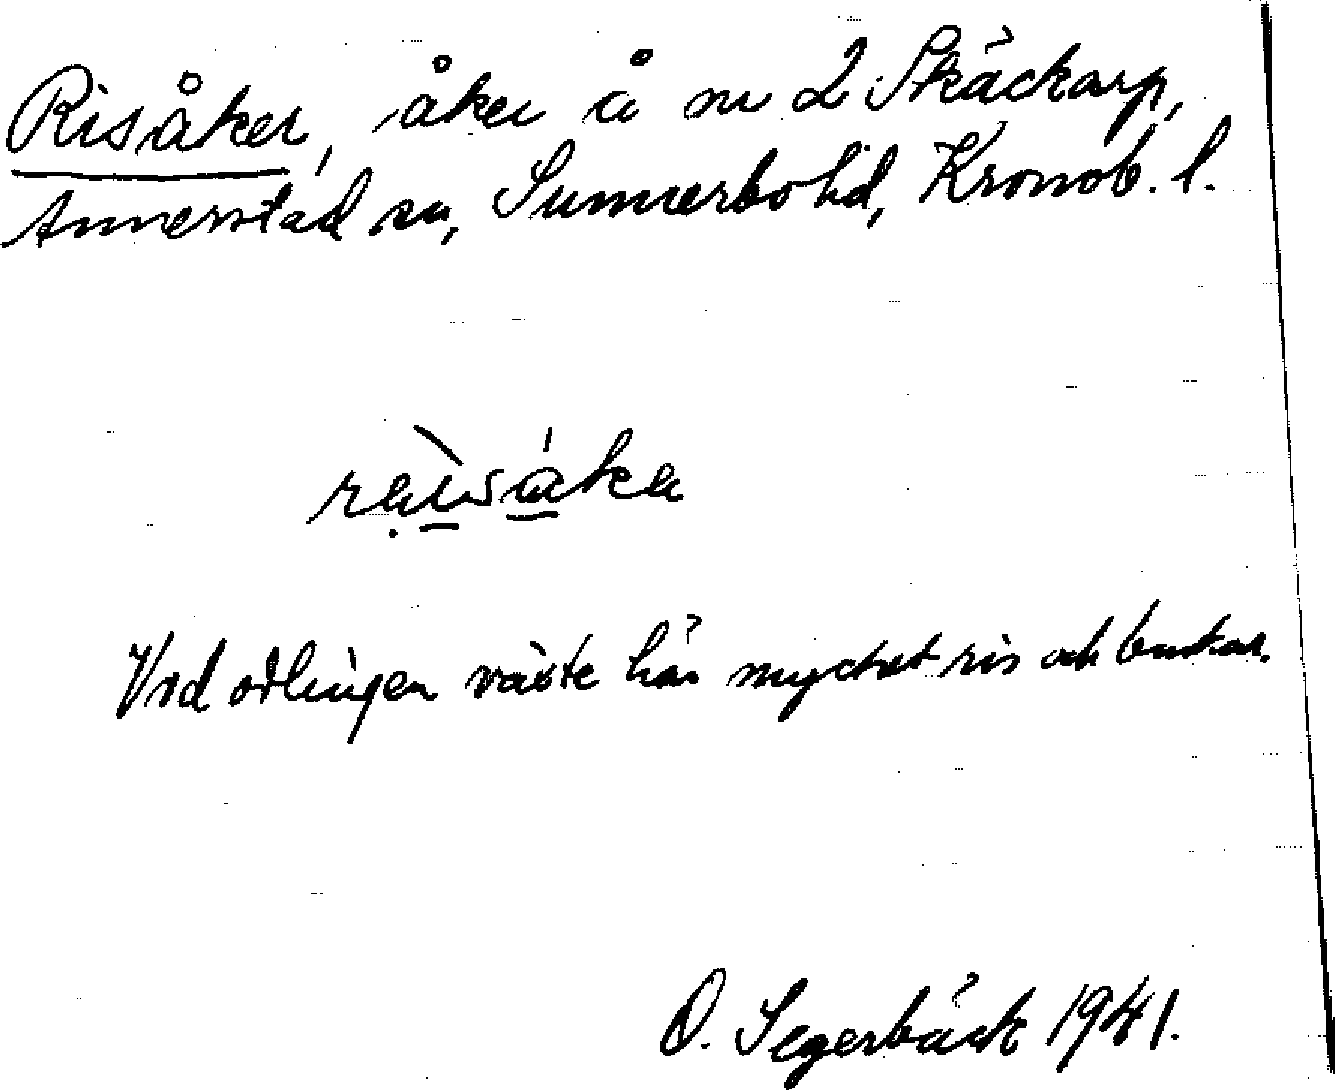 Risåker, åker å nr 2 Skäckarp,
Annerstad sn, Sunnerbo hd, Kronob. l.
Vid odlingen växte här mycket ris och buskar.
O. Segerbäck 1941.